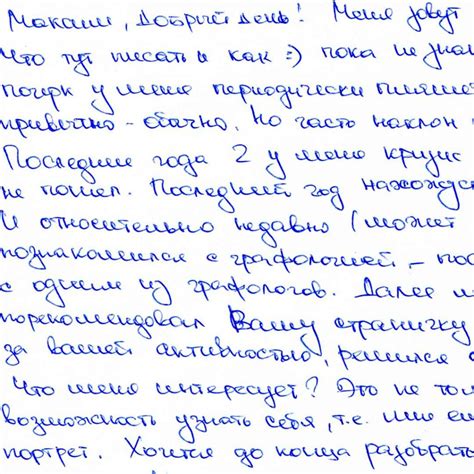 Максим, Добрый день! Меня зовут
Что тут писать и как :) пока не знаю
почерк у меня периодически пляшет
привычно - обычно. Но часть наклон
Последние года 2 у меня кризис
не пошел. Последний год нахожус
И относительно недавно (может
познакомился с графологией, - пос
с одним из графологов. Далее
порекомендовал Вашу страничку
за вашей активностью, решился
Что меня интересует? Это не тол
возможность узнать себя, т.е. мне
портрет. Хочется до конца разобрать